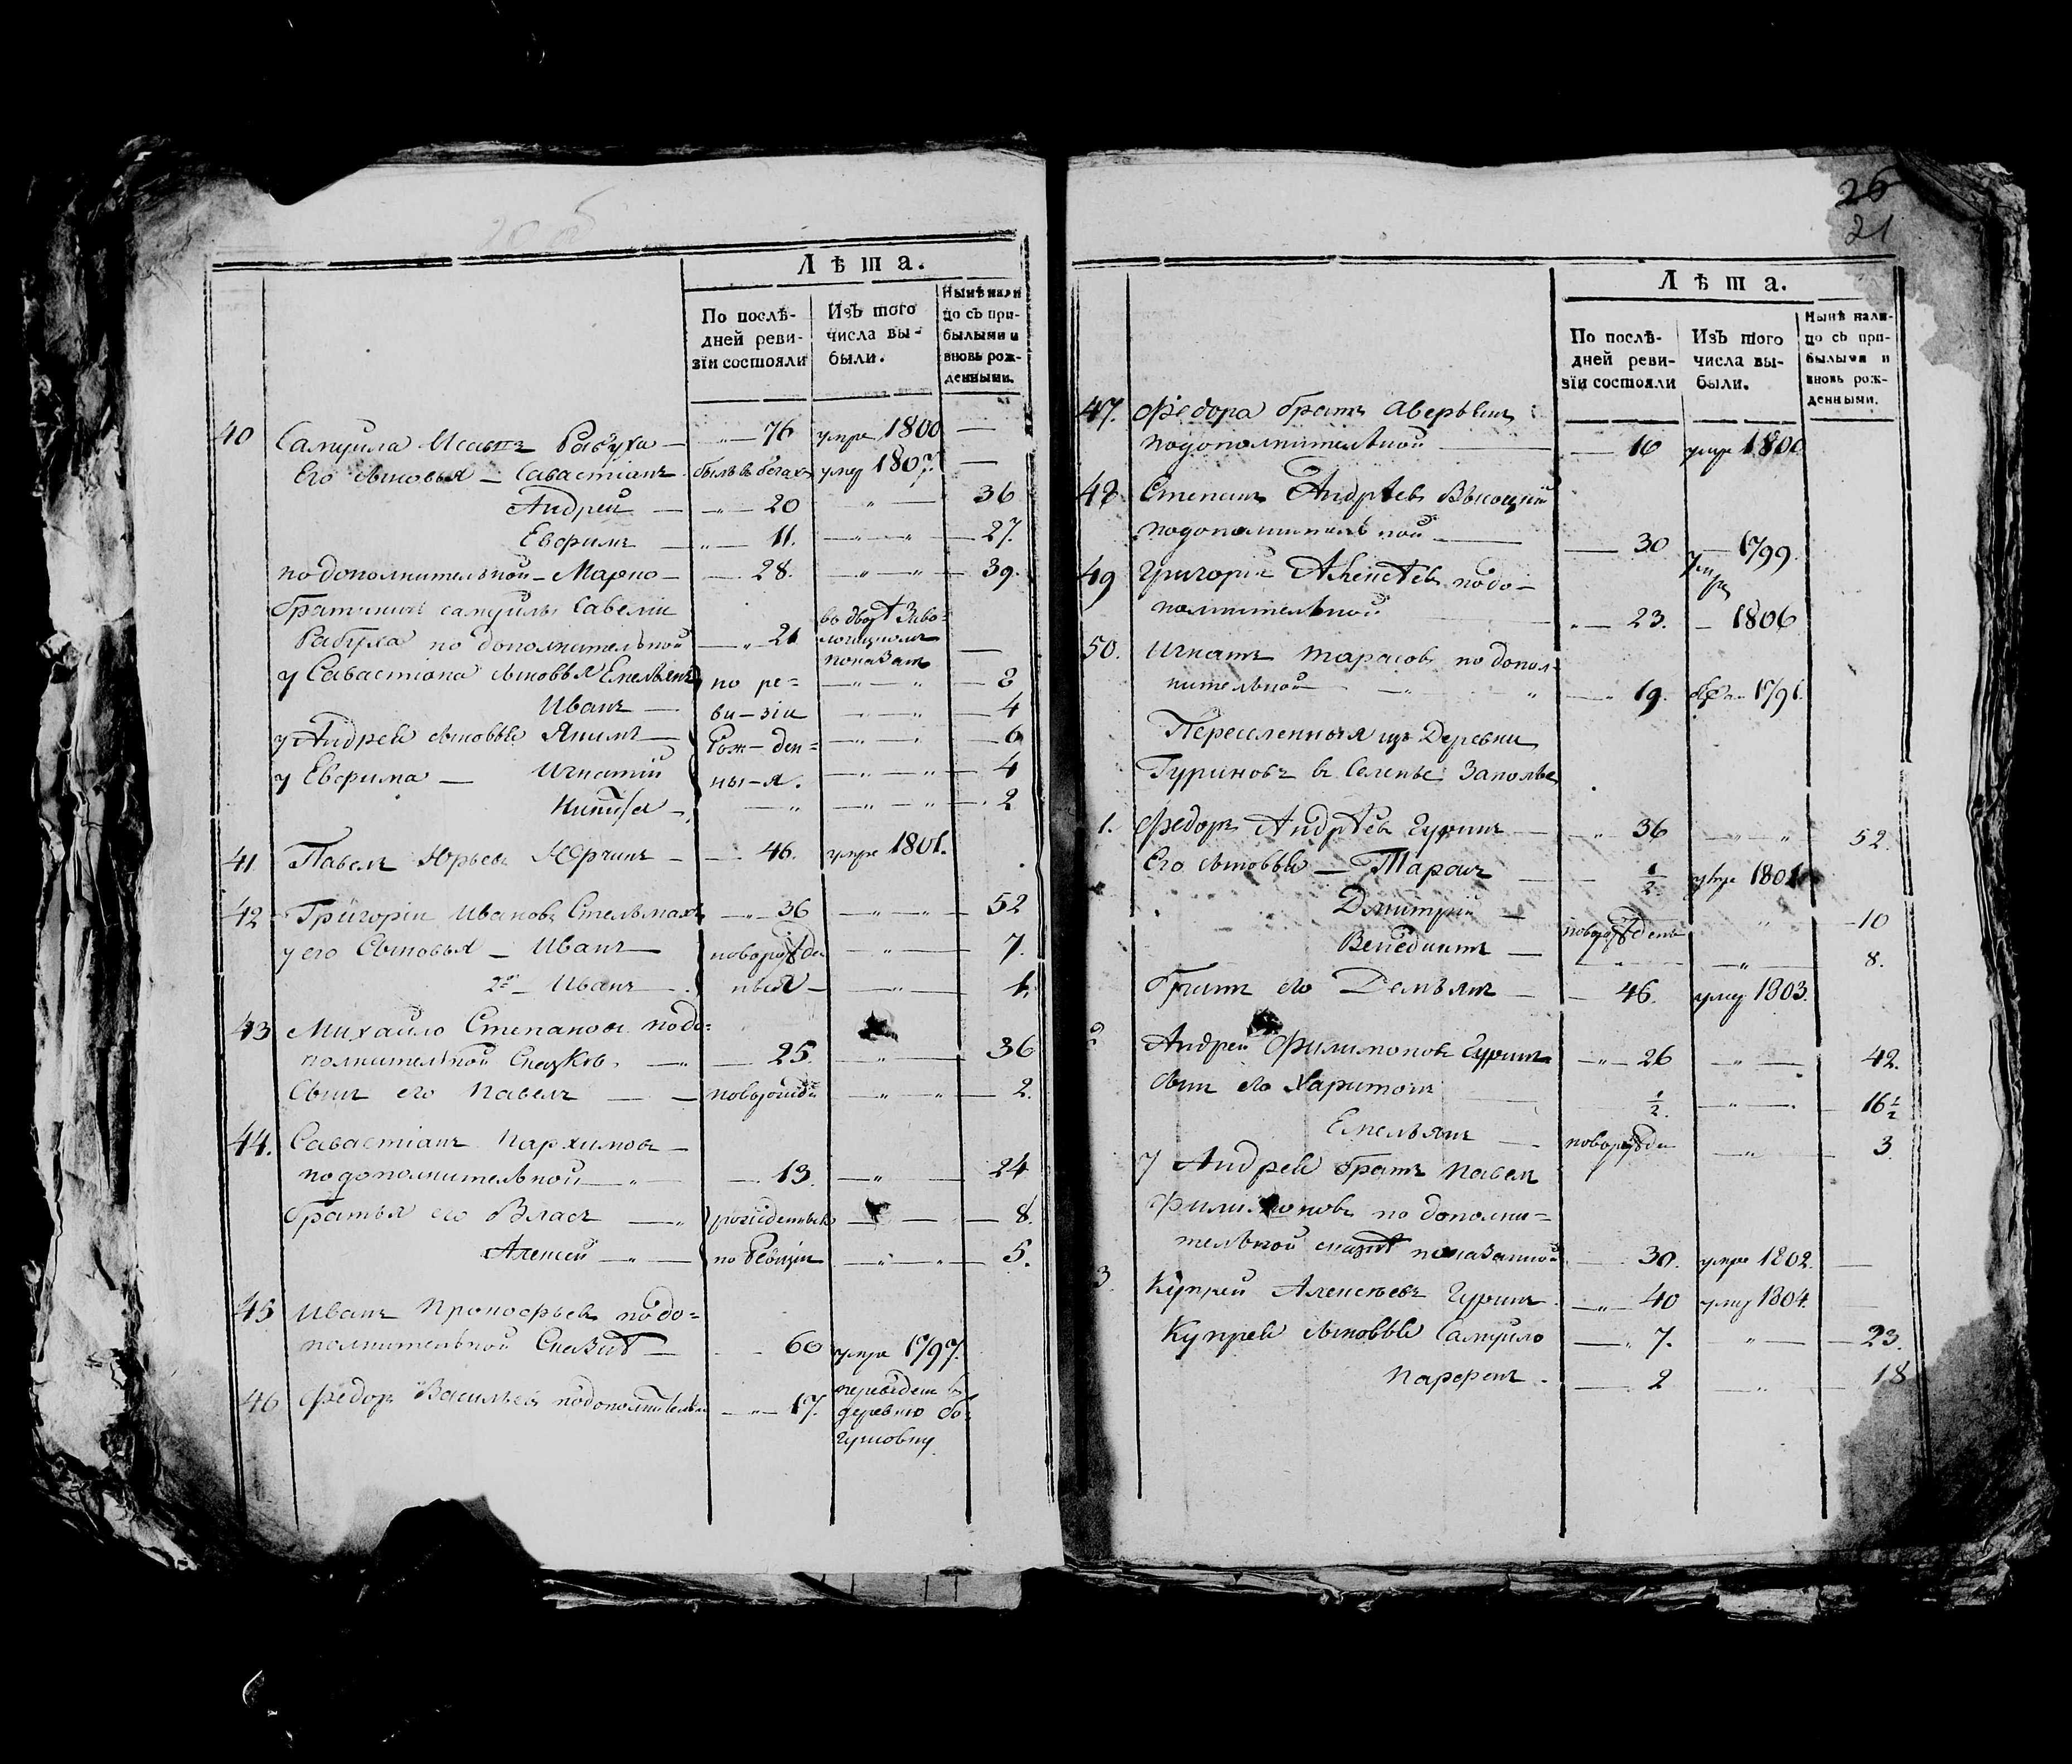 Лѣта.
По послѣ-
дней реви-
зїи состояли
Изъ того
числа вы-
были.
Нынѣ нали
цо съ при-
былыми и
вновь рож-
денными.
40 Самуила Исаевъ — „ — 76 умре 1800 —
Его сыновья — Савастіанъ былъ в бегахъ умер 1807. —
Андрей — „ — 20 „ — 36
Евфимъ — „ — 11. — „ — 27.
по дополнительной — Марко — — 28. — „ — 39.
Братаничъ самуилы Савелій
Рабуха по дополнительной — „ — 21 во дворѣ
показанъ —
у Савастіана сыновья Емельянъ по ре= — „ — 8
Иванъ — ви-зіи — „ — 4
у Андрея сыновья Якимъ — Рож-ден= — „ — 6
у Евфима — Игнатій ны-я. — „ — 4
Никита — — „ — „ — 2
41. Павелъ Юрьевъ Юрчикъ — — 46. умре 1801.
42 Григорій Ивановъ Стельмахъ — „ — 36 — „ — 52
у его Сыновья — Иванъ — новорожде — „ — 7.
2й — Иванъ — нныя — — „ — 1.
43 Михайло Степановъ подо=
полнительной Сказкѣ — „ — 25. — „ — 36
Сынъ его Павелъ — — новорожде — „ — 2.
44. Савастіанъ Пархимовъ —
подополнительной — „ — 13. — „ — 24
братья его Власъ — „ рожденные — — 8.
Алексей — „ — по Ревизіи — „ — 5.
45 Иванъ Прокофьевъ подо=
полнительной Сказкѣ — — 60 умре 1797.
46 Федоръ Васильевъ подополнительн — „ — 17. переведенъ в
деревню Бо-
гушовку
26
21
Лѣта.
По послѣ-
дней реви-
зїи состояли
Изъ того
числа вы-
были.
Нынѣ нали-
цо съ при-
былыми и
вновь рож-
денными.
47. Федора братъ Аверьянъ
подополнительной — — 16 умре 1800
48. Степанъ Андрѣевъ Высоцкій
подополнительной — — 30 умре — 1799.
49 Григорій Алексѣевъ подо-
полнительной — 23. — 1806
50. Игнатъ Тарасовъ по допол-
нительной — „ „ — 19. 1791.
Переселенныя изъ Деревни
Гуриновъ в Селенье Заполье
1. Федоръ Андрѣевъ Гуринъ — „ 36 — „ „ 52.
Его сыновья — Тарасъ — — 1/2 умре 1801
Дмитрій — новорожденъ „ — 10
Венедиктъ — — „ — „ — 8.
братъ его Демьянъ — — 46. умер 1803.
2 Андрей Филимоновъ Гуринъ — „ — 26 — „ — 42.
сынъ его Харитонъ — 1/2. — „ — . — 16 1/2
Емельянъ — новорожде — „ — 3.
у Андрея братъ Павелъ
Филимоновъ по дополни=
тельной сказкѣ показанной — 30. умре 1802. —
3. Купрей Алексѣевъ Гуринъ — „ — 40 умер 1804. —
Купрея сыновья Самуйло — „ 7. „ — 23.
Парфенъ. — 2 — „ — 18